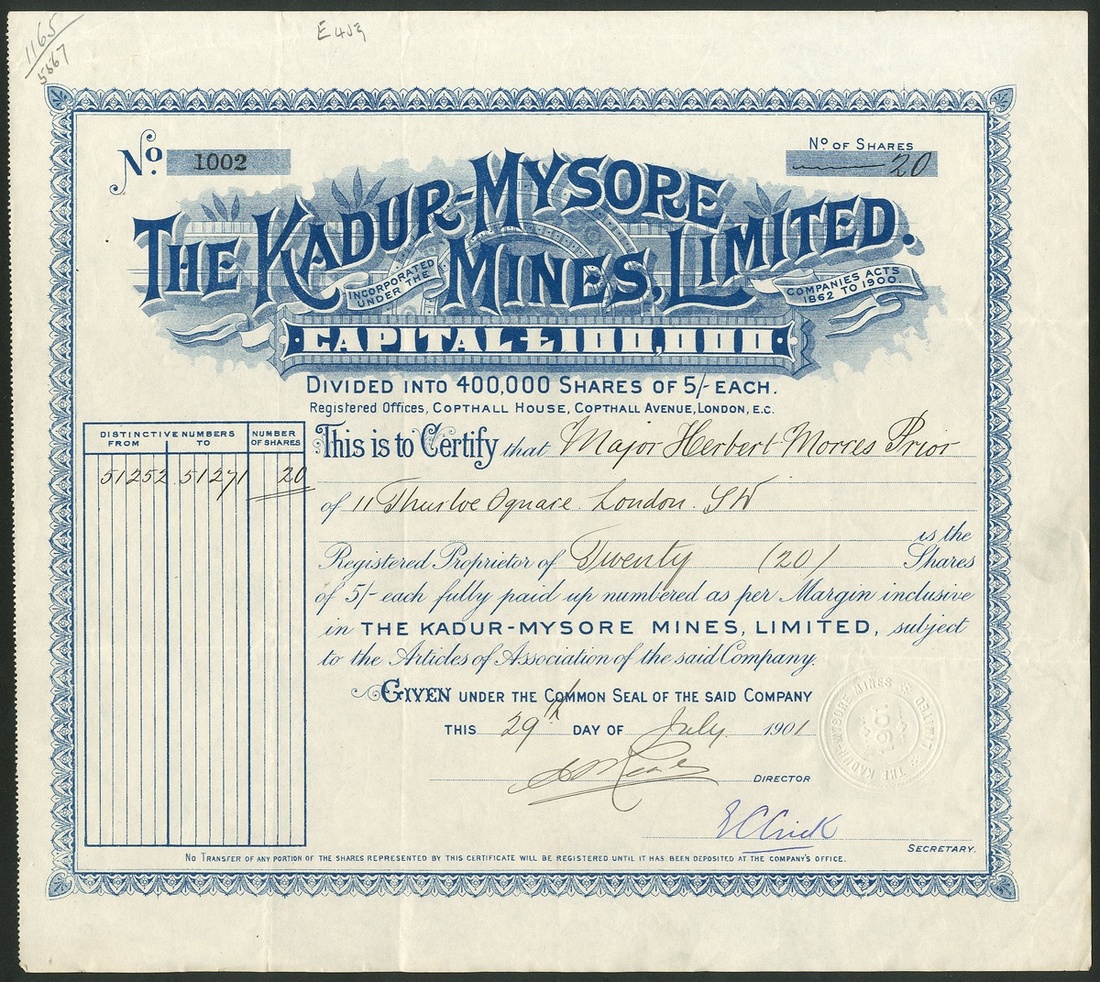 1165
5867
E 459
No. 1002
No OF SHARES
20
THE KADUR-MYSORE MINES, LIMITED.
INCORPORATED UNDER THE
COMPANIES ACTS 1862 TO 1900.
CAPITAL £100,000
DIVIDED INTO 400,000 SHARES OF 5/- EACH.
Registered Offices, COPTHALL HOUSE, COPTHALL AVENUE, LONDON, E.C.
DISTINCTIVE NUMBERS FROM TO
NUMBER OF SHARES
51252 51271 20
This is to Certify that Major Herbert Morres Prior
of 11 Thurloe Square. London. SW
is the
Registered Proprietor of Twenty (20) Shares
of 5/- each fully paid up numbered as per Margin inclusive
in THE KADUR-MYSORE MINES, LIMITED, subject
to the Articles of Association of the said Company.
GIVEN UNDER THE COMMON SEAL OF THE SAID COMPANY
THIS 29th DAY OF July 1901
DIRECTOR
THE KADUR-MYSORE MINES LIMITED
1901
E C Crick
SECRETARY.
NO TRANSFER OF ANY PORTION OF THE SHARES REPRESENTED BY THIS CERTIFICATE WILL BE REGISTERED UNTIL IT HAS BEEN DEPOSITED AT THE COMPANY'S OFFICE.